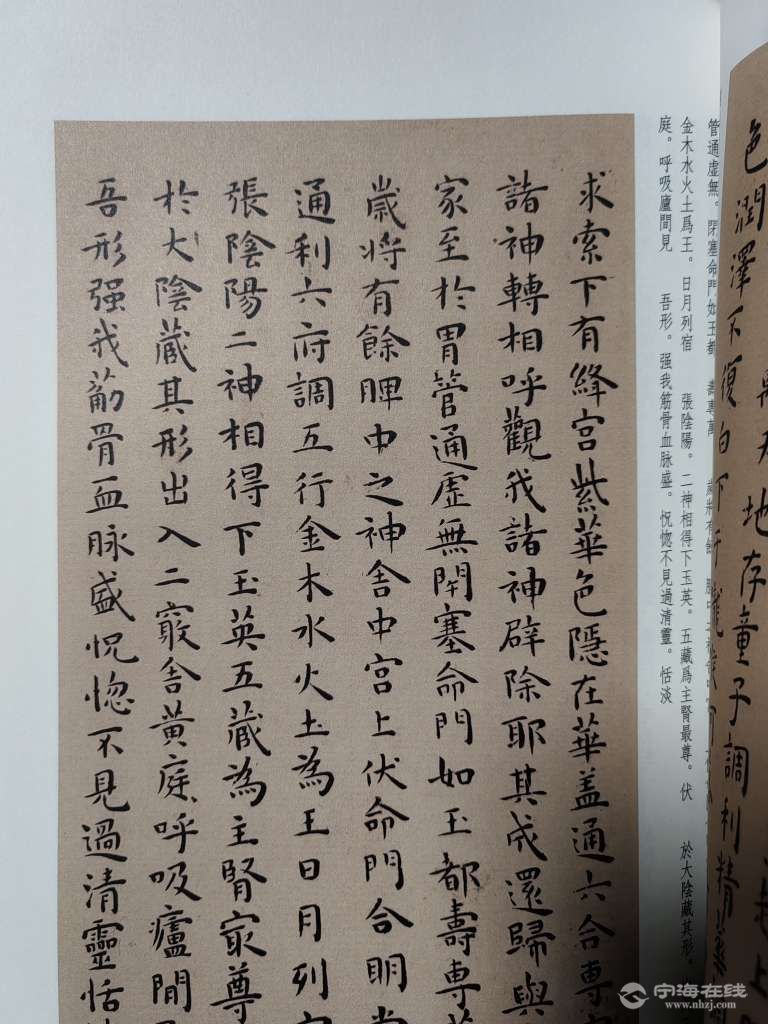 地存童子調利精
色潤澤不復白下于
管通虛無。閉塞命門如玉都 壽專萬
金木水火土爲王。日月列宿 張陰陽。二神相得下玉英。五藏爲主腎最尊。伏 於大陰藏其形。
庭。呼吸廬間見 吾形。强我筋骨血脉盛。怳惚不見過清靈。恬淡
求索下有絳宮紫華色隱在華盖通六合專
諸神轉相呼觀我諸神辟除耶其成還歸與
家至於胃管通虛無閉塞命門如玉都壽專
歲將有餘脾中之神舍中宮上伏命門合明
通利六府調五行金木水火土為王日月列
張陰陽二神相得下玉英五藏為主腎㝡尊
於大陰藏其形出入二竅舍黃庭呼吸廬間
吾形强我筋骨血脉盛怳惚不見過清靈恬
宁海在线
www.nhzj.com